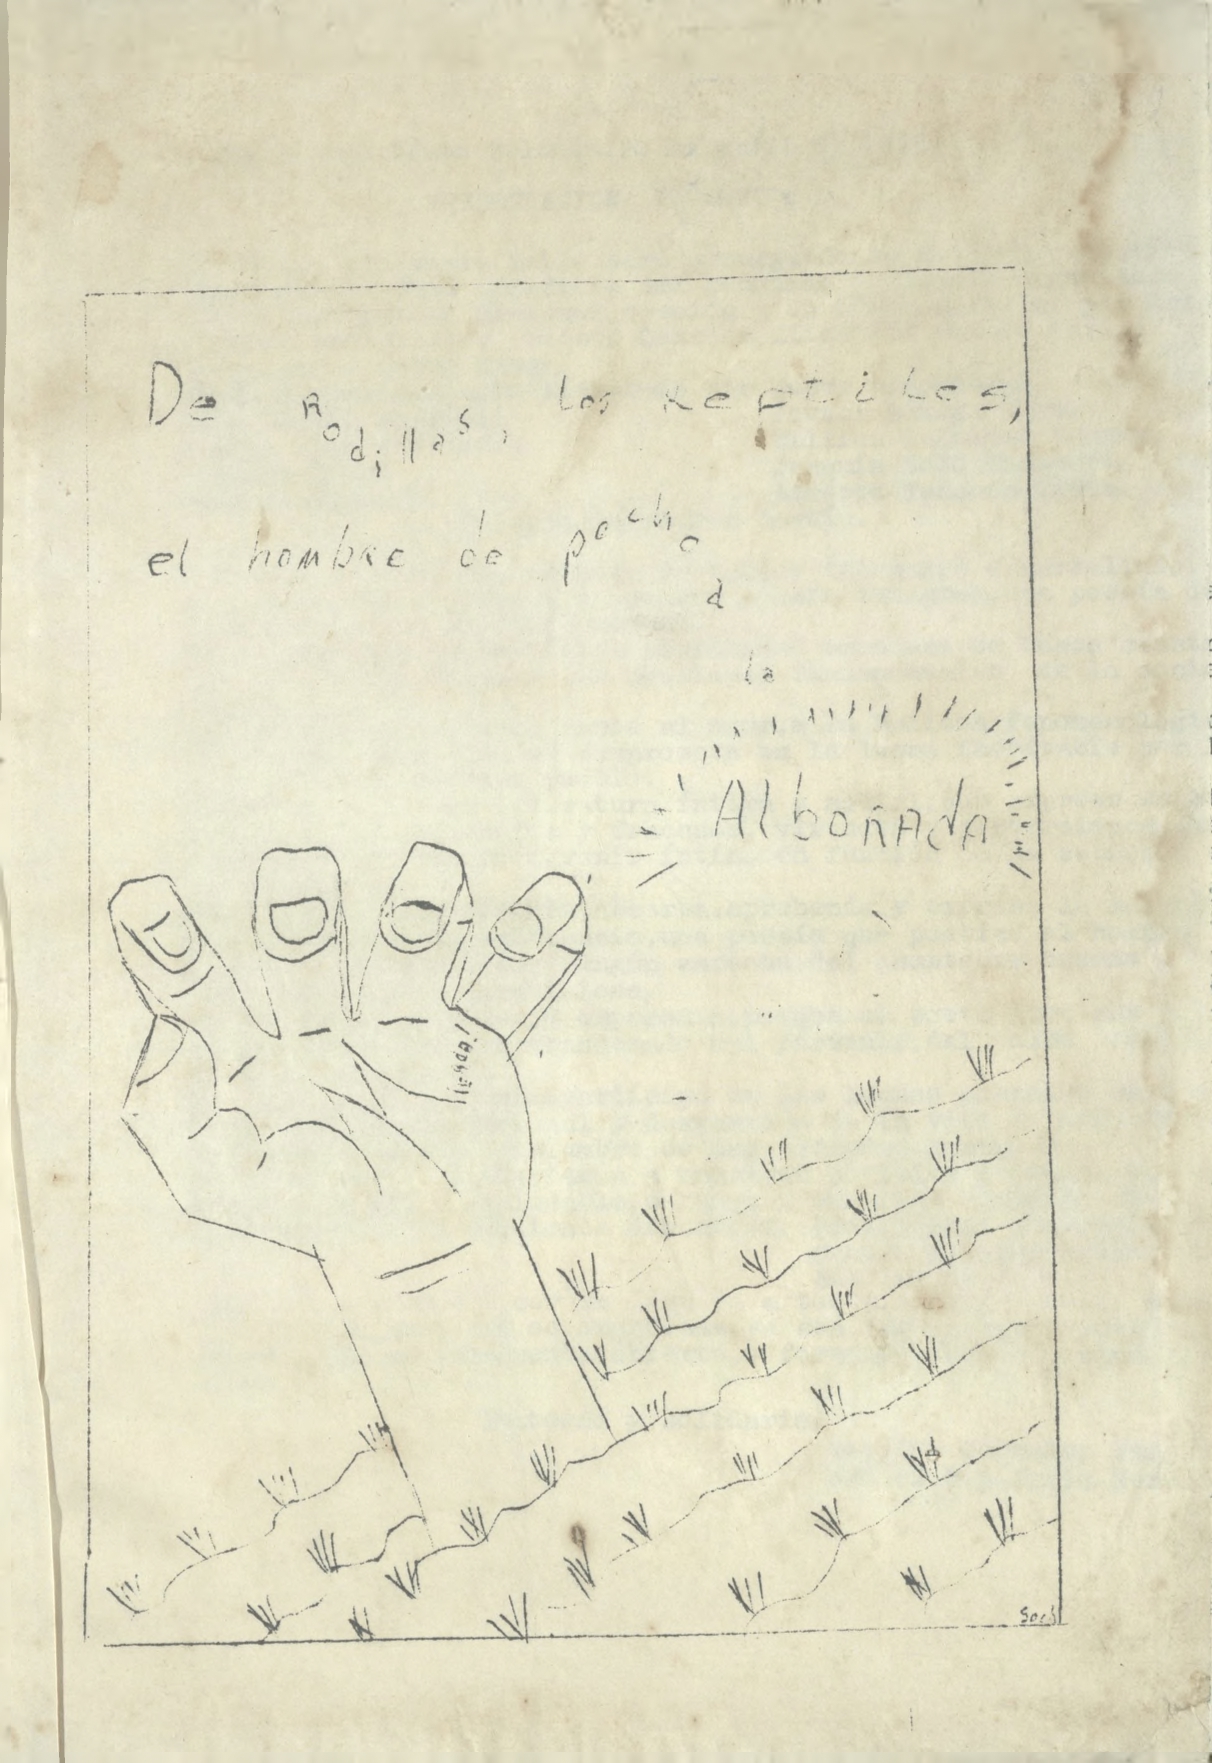 De Rodillas, los Reptiles,
el hombre de pecho
a
la
AlboRAdA